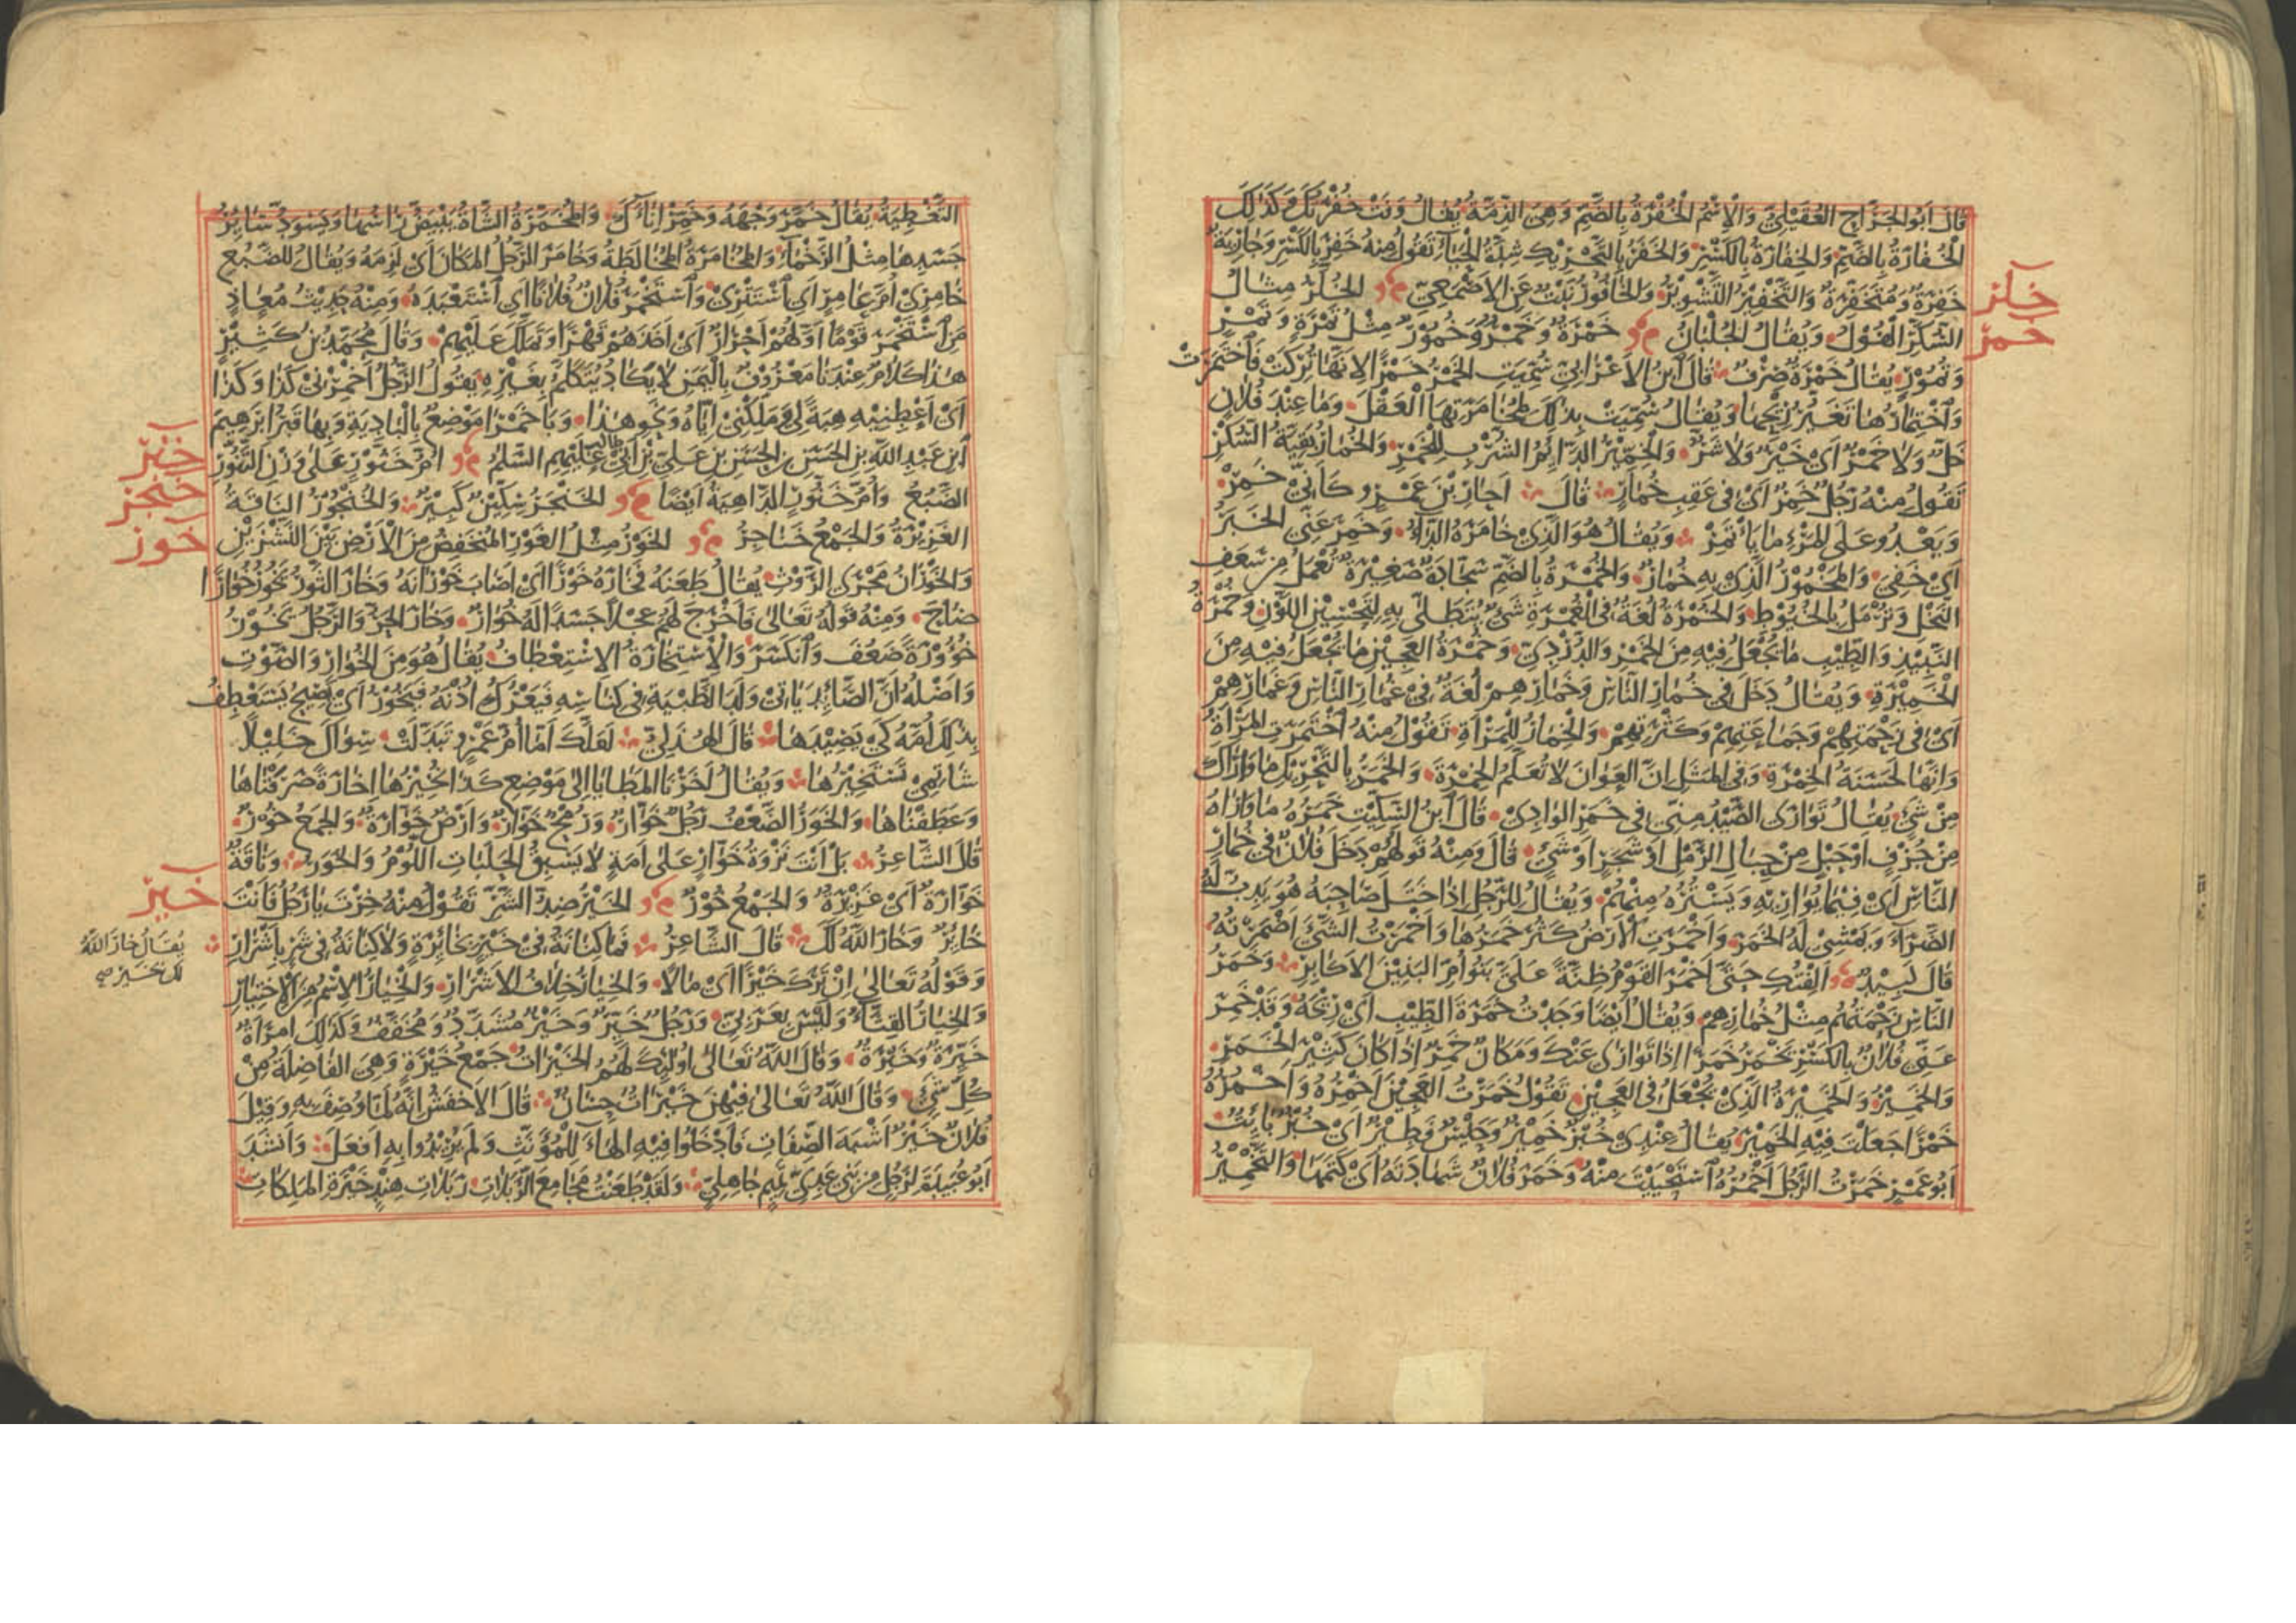 قال ابو الجراح العقيلي والاسم الخفرة بالضم وهي الذمة يقال وفت خفرتك وكذلك
الخفارة بالضم والخفارة بالكسر والخفر بالتحريك شدة الحياء تقول منه خفر بالكسر وجارية
خفرة ومتخفرة والتخفير التسوير والخافور نبت عن الاصمعي الخلر مثال
السكر الفول ويقال الجلبان خمرة وخمر وخمور مثل تمرة وتمر
وتمور يقال خمرة صرف قال ابن الاعرابي سميت الخمر خمرا لانها تركت فاختمرت
واختمارها تغير ريحها ويقال سميت بذلك لمخامرتها العقل وما عند فلان
خل ولا خمر اي خير ولا شر والخمير الدائم الشرب للخمر والخمار بقية السكر
تقول منه رجل خمر اي في عقب خمار قال احار بن عمرو كاني خمر
ويعدو على المرء ما يأتمر ويقال هو الذي خامره الداء وخمر عني الخبر
اي خفي والمخمور الذي به خمار والخمرة بالضم سجادة صغيرة تعمل من سعف
النخل وترمل بالخيوط والخمرة لغة في الغمرة شيء يتطلى به لتحسين اللون وخمرة
النبيذ والطيب ما يجعل فيه من الخمر والدردي وخمرة العجين ما يجعل فيه من
الخميرة ويقال دخل في خمار الناس وخمارهم لغة في غمار الناس وغمارهم
اي في زحمتهم وجماعتهم وكثرتهم والخمار للمرأة تقول منه اختمرت المرأة
وانها لحسنة الخمرة وفي المثل ان العوان لا تعلم الخمرة والخمر بالتحريك ما واراك
من شيء يقال توارى الصيد مني في خمر الوادي قال ابن السكيت خمره ما واراه
من جرف او جبل من جبال الرمل او شجر او شيء قال ومنه قولهم دخل فلان في خمار
الناس اي فيما يواريه ويستره منهم ويقال للرجل اذا ختل صاحبه هو يدب له
الضراء ويمشي له الخمر واخمرت الارض كثر خمرها واخمرت الشيء اضمرته
قال لبيد الفتك حتى اخمر القوم ظنة علي بنو ام البنين الاكابر وخمر
الناس زحمتهم مثل خمارهم ويقال ايضا وجدت خمرة الطيب اي ريحه وقد خمر
عني فلان بالكسر يخمر خمرا اذا توارى عنك ومكان خمر اذا كان كثير الخمر
والخمير والخميرة الذي يجعل في العجين تقول خمرت العجين اخمره واخمره
خمرا جعلت فيه الخمير يقال عندي خبز خمير وحيس فطير اي خبز بائت
ابو عمرو خمرت الرجل اخمره استحييت منه وخمر فلان شهادته اي كتمها والتخمير
خلر
خمر
التغطية يقال خمر وجهه وخمر اناءك والمخمرة الشاة يبيض راسها ويسود سائر
جسدها مثل الرخماء والمخامرة المخالطة وخامر الرجل المكان اي لزمه ويقال للضبع
خامري ام عامر اي استتري واستخمر فلان فلانا اي استعبده ومنه حديث معاذ
من استخمر قوما اولهم احرار اي اخذهم قهرا وتملك عليهم وقال محمد بن كثير
هذا كلام عندنا معروف باليمن لا يكاد يتكلم بغيره يقول الرجل اخمرني كذا وكذا
اي اعطنيه هبة لي وملكني اياه ونحو هذا وباخمرا موضع بالبادية وبها قبر ابرهيم
ابن عبد الله بن الحسن بن الحسن بن علي بن ابي طالب عليهم السلم ام خنور على وزن التنور
الضبع وام خنور الداهية ايضا الخنجر سكين كبير والخنجور الناقة
الغزيرة والجمع خناجر الخور مثل الغور المنخفض من الارض بين النشزين
والخوران مجرى الروث يقال طعنه فخاره خورا اي اصاب خورانه وخار الثور يخور خوارا
صاح ومنه قوله تعالى فاخرج لهم عجلا جسدا له خوار وخار الحر والرجل يخور
خؤورة ضعف وانكسر والاستخارة الاستعطاف يقال هو من الخوار والصوت
واصله ان الصائد ياتي ولد الظبية في كناسه فيعرك اذنه فيخور اي يصيح يستعطف
بذلك امه كي يصيدها قال الهذلي لعلك اما ام عمرو تبدلت سواك خليلا
شاتمي تستخيرها ويقال اخرنا المطايا الى موضع كذا نخيرها اخارة صرفناها
وعطفناها والخور الضعف رجل خوار ورمح خوار وارض خوارة والجمع خور
قال الشاعر بل انت نزوة خوار على امة لا يسبق الحلبات اللؤم والخور وناقة
خوارة اي غزيرة والجمع خور الخير ضد الشر تقول منه خرت يا رجل فانت
خائر وخار الله لك قال الشاعر فما كنانة في خير بخائرة ولا كنانة في شر باشرار
وقوله تعالى ان ترك خيرا اي مالا والخيار خلاف الاشرار والخيار الاسم من الاختيار
والخيار القثاء وليس بعربي ورجل خير وخير مشدد ومخفف وكذلك امراة
خيرة وخيرة وقال الله تعالى اولئك لهم الخيرات جمع خيرة وهي الفاضلة من
كل شيء وقال الله تعالى فيهن خيرات حسان قال الاخفش انه لما وصف به وقيل
فلان خير اشبه الصفات فادخلوا فيه الهاء للمؤنث ولم يريدوا به افعل وانشد
ابو عبيدة لرجل من بني عدي تيم جاهلي ولقد طعنت مجامع الربلات ربلات هند خيرة الملكات
خنر
خنجر
خور
خير
يقال خار الله
لك